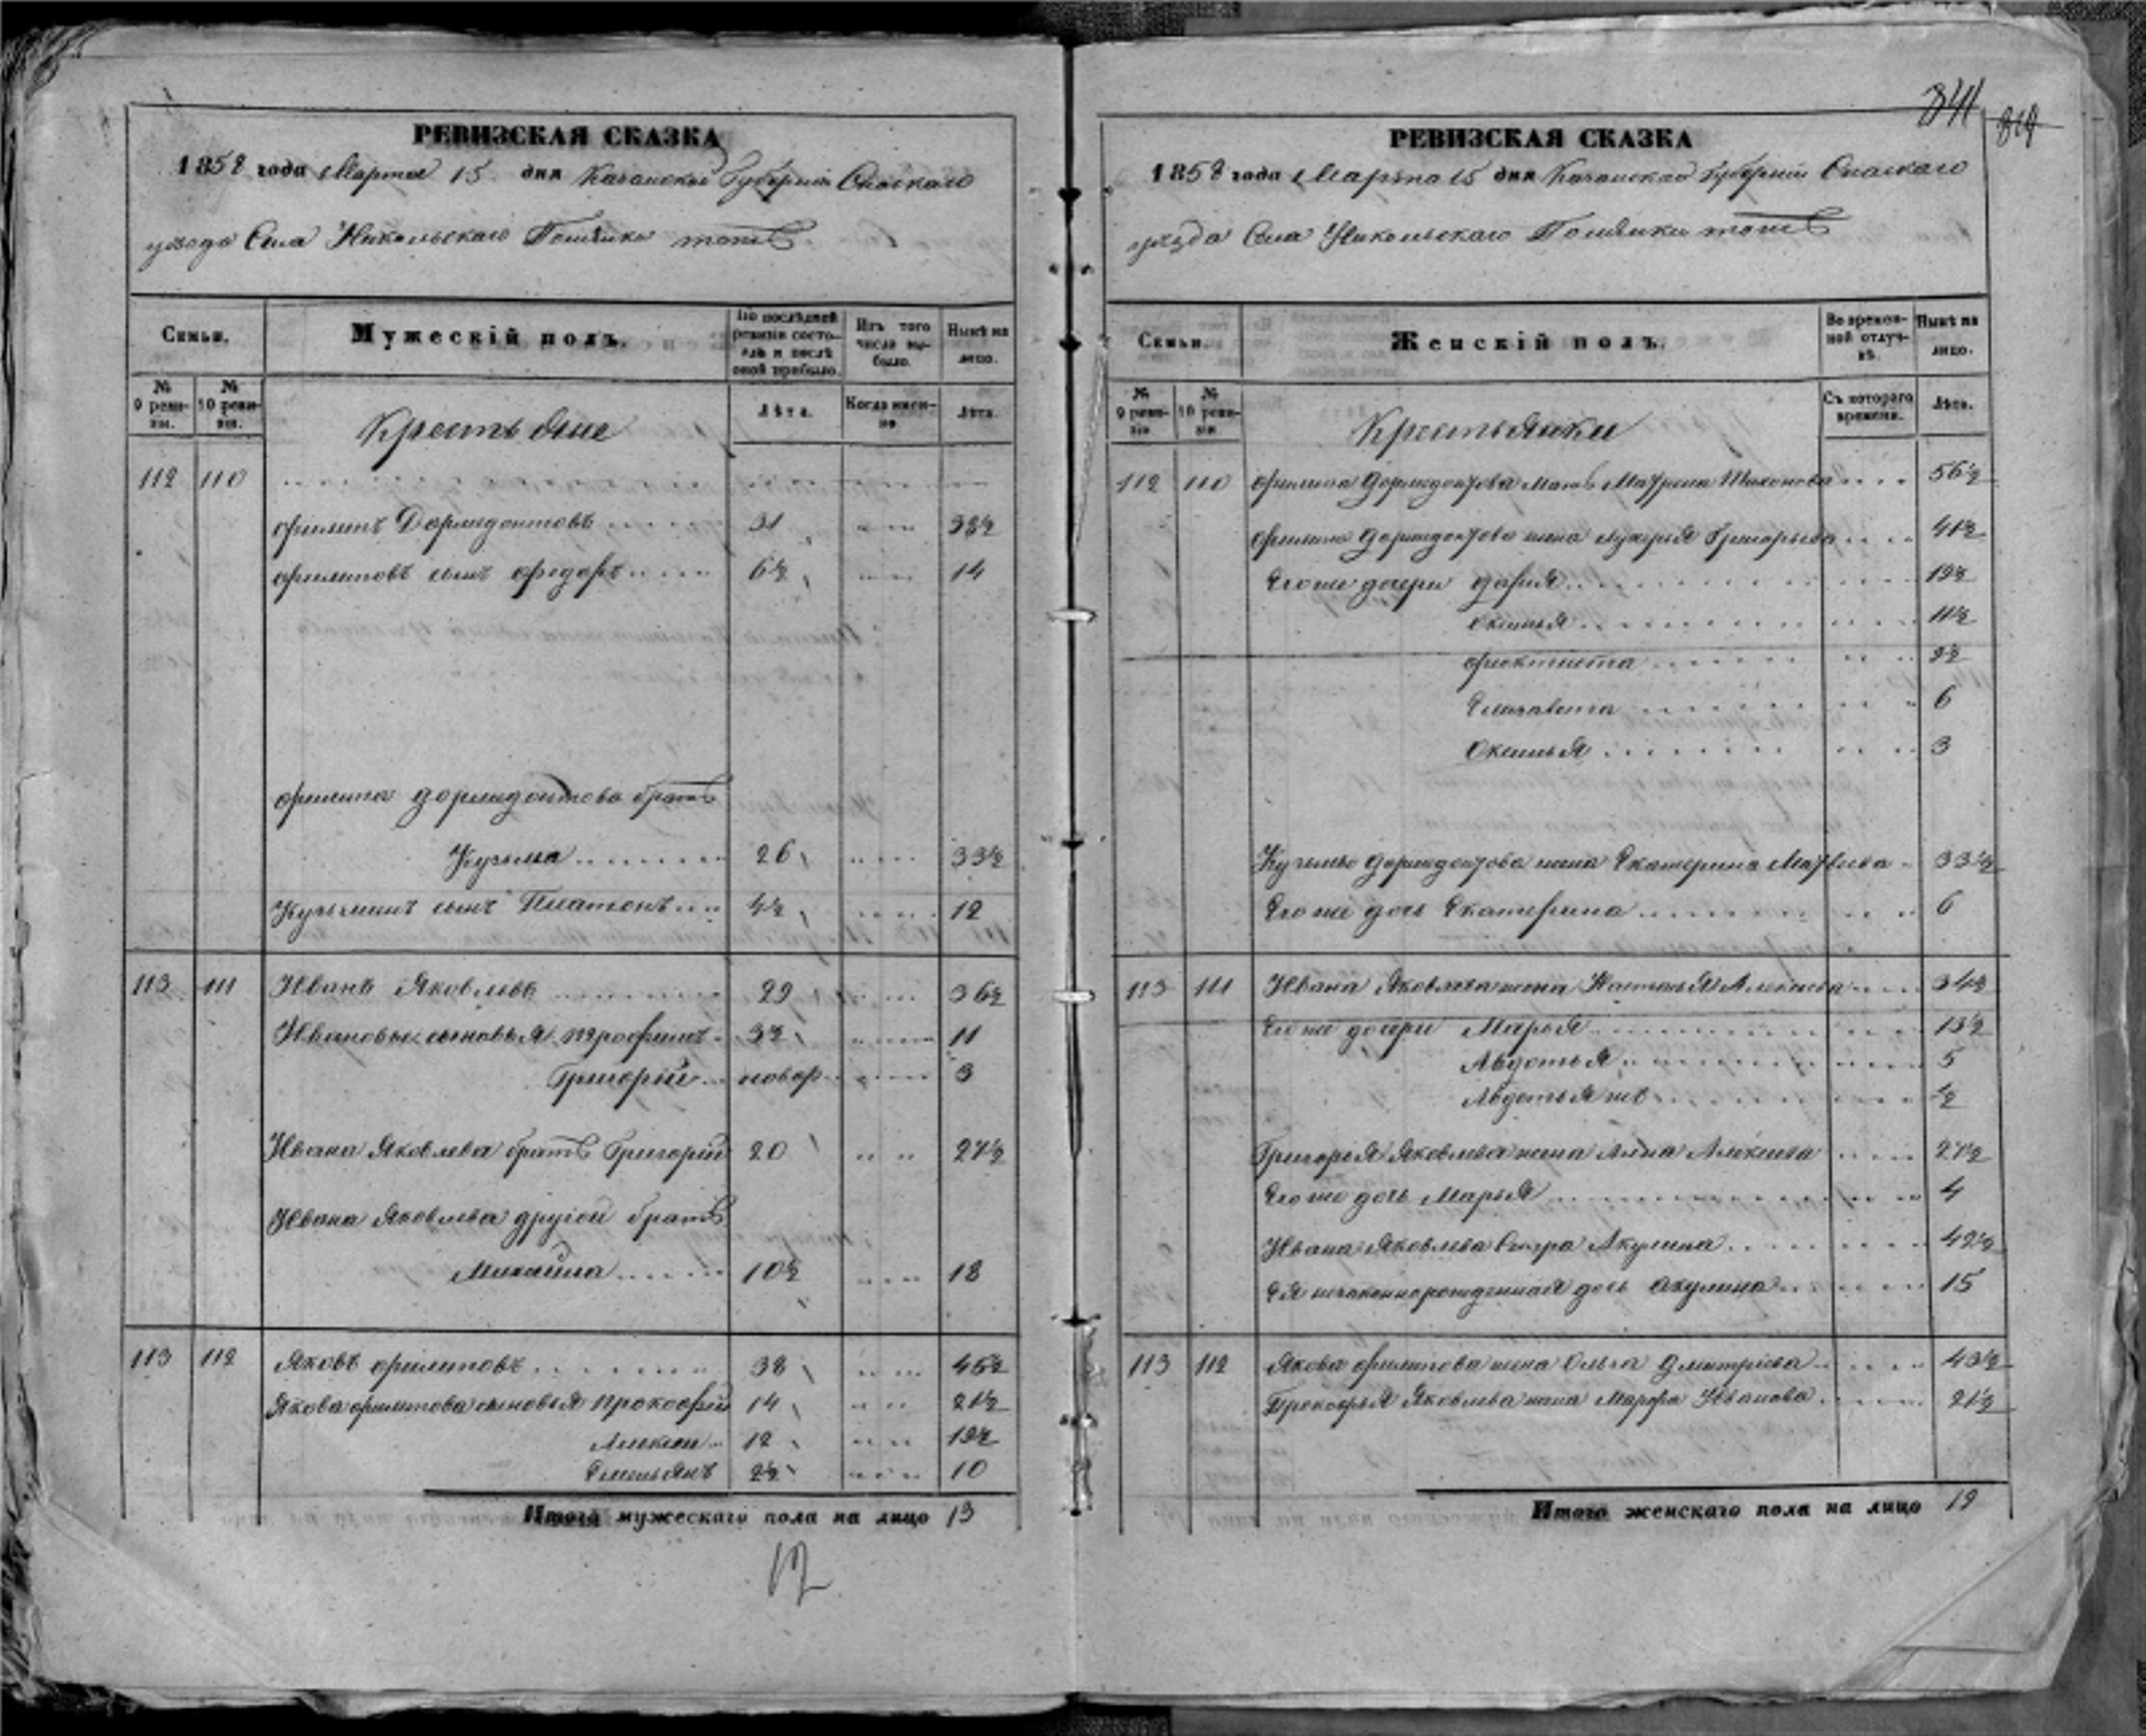 РЕВИЗСКАЯ СКАЗКА
1858 года Марта 15 дня Казанской Губернии Спаскаго
уезда Села Никольскаго Полянки тожъ
Семьи.
Мужескій полъ.
По послѣдней ревизіи состояло и послѣ оной прибыло.
Изъ того числа выбыло.
Нынѣ на лицо.
№ 9 ревизіи.
№ 10 ревизіи.
Крестьяне
Лѣта.
Когда именно
Лѣта.
112 110
Филипъ Дормидонтовъ 31 38½
Филиповъ сынъ Федоръ 6½ 14
Филипа Дормидонтова братъ
Кузьма 26 33½
Кузьминъ сынъ Платонъ 4½ 12
113 111 Иванъ Яковлевъ 29 36½
Ивановы сыновья Трофимъ 3½ 11
Григорій новор. 3
Ивана Яковлева братъ Григорій 20 27½
Ивана Яковлева другой братъ
Михайла 10½ 18
113 112 Яковъ Филиповъ 38 45½
Якова Филипова сыновья Прокофій 14 21½
Алексей 12 19½
Емельянъ 2½ 10
Итого мужескаго пола на лицо 13
12
341
РЕВИЗСКАЯ СКАЗКА
1858 года Марта 15 дня Казанской Губернии Спаскаго
уезда Села Никольскаго Полянки тожъ
Семьи.
Женскій полъ.
Во временной отлучкѣ.
Нынѣ на лицо.
№ 9 ревизіи.
№ 10 ревизіи.
Крестьянки
Съ котораго времени.
Лѣта.
112 110 Филипа Дормидонтова мать Матрена Тихонова 56½
Филипа Дормидонтова жена Лукерья Григорьева 41½
Его же дочери Дарья 19½
Оксинья 11½
Фиоктиста 9½
Елизавета 6
Оксинья 3
Кузьмы Дормидонтова жена Екатерина Матвеева 33½
Его же дочь Екатерина 6
113 111 Ивана Яковлева жена Настасья Алексеева 34½
Его же дочери Марья 13½
Авдотья 5
Авдотья же ½
Григорья Яковлева жена Анна Алексеева 27½
Его же дочь Марья 4
Ивана Яковлева сестра Акулина 42½
Ея незаконнорожденная дочь Акулина 15
113 112 Якова Филипова жена Ольга Дмитриева 43½
Прокофья Яковлева жена Марфа Иванова 21½
Итого женскаго пола на лицо 19